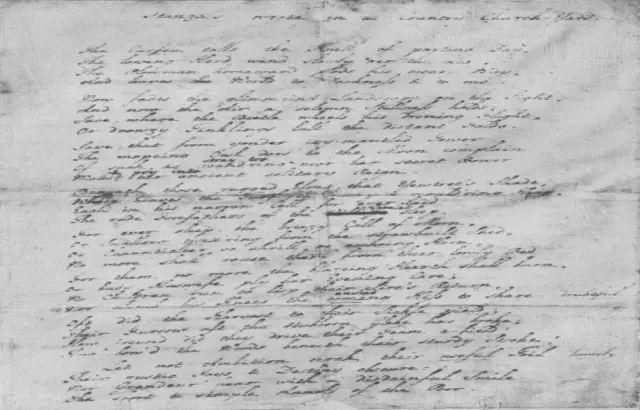 Stanza's wrote in a Country Church-Yard
The Curfew tolls the Knell of parting Day,
The lowing Herd wind slowly o'er the Lea,
The Plowman homeward plods his weary Way,
And leaves the World to Darkness & to me.
Now fades the glimmering Landscape on the Sight,
And now the Air a solemn Stillness holds;
Save, where the Beetle wheels his droning Flight,
Or drowsy Tinklings lull the distant Folds.
Save that from yonder ivy-mantled Tower
The mopeing Owl does to the Moon complain
Of such as wandring near her secret Bower
ancient solitary Reign.
Beneath those rugged Elms, that Yewtree's Shade,
Each in his narrow Cell for ever laid
The rude Forefathers of the
For ever sleep, the breezy Call of Morn,
Or Swallow
Or
No more shall rouse them from their lowly Bed
For them no more the blazing Hearth shall burn,
Or busy Huswife ply her Evening Care,
No Children run to their Sire's Return,
to share
Oft did the Harvest to their Sickle yield;
Their Furrow oft the stubborn Glebe has broke;
How jocund did they drive their Team a-field!
How bow'd the Woods beneath their sturdy Stroke!
Let not Ambition mock their useful Toil,
Their rustic Joys, & Destiny obscure:
Nor Grandeur hear with a disdainful Smile
The short & simple Annals of the Poor.